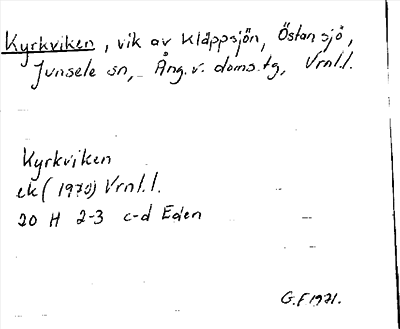 Kyrkviken, vik av Kläppsjön, Östansjö,
Junsele sn, Ång.v. doms.tg, Vrnl.l.
Kyrkviken
ek (1970) Vrnl.l.
20 H 2-3 c-d Eden
G.F 1971.